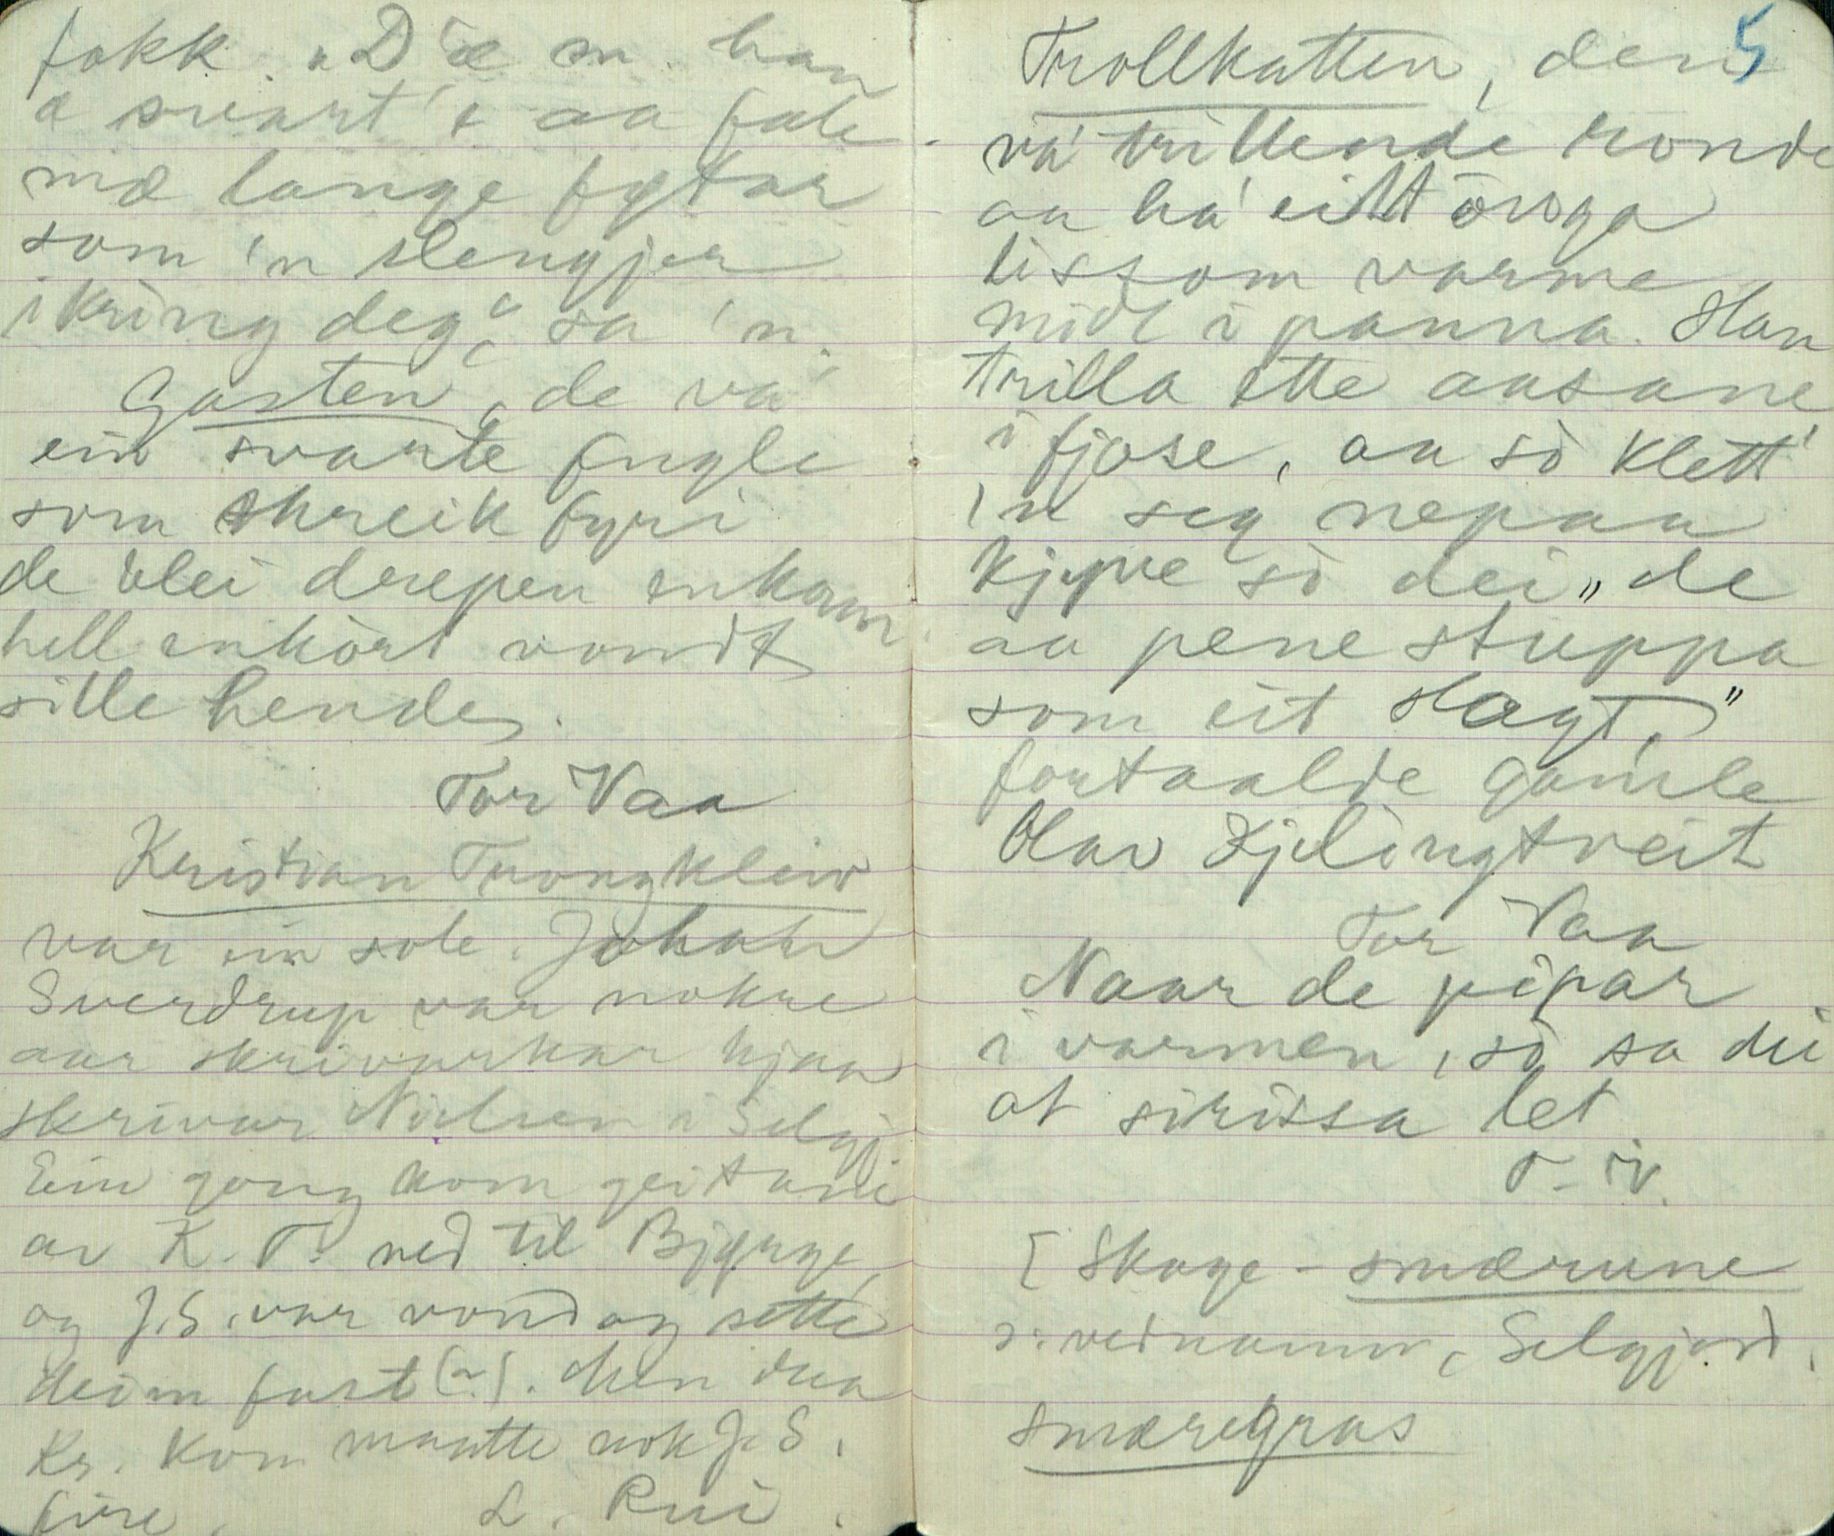 fokk. "Dæ m. han
æ svart'e aa fæle
mæ lange føtar
som 'n slengjer
ikring deg", sa 'n.
Gasten, de va'
ein svarte fugle
som skreik fyri
de blei drepen enkann
hell enkort vondt
sille hende.
Tor Vaa
Kristian Trongkleiv
var ein sole. Johan
Sverdrup var nokre
aar skrivarkar hjaa
skrivar Nielsen i Selgj.
Ein gong kom geitane
av K. T. ned til Bjørge,
og J.S. var vond og sette
deim fast (~). Men daa
Kr. kom maatte nok J.S.
fire. L. Rui.
5
Trollkatten, den
va' trillende ronde
aa ha' eitt ovga
lissom varme
midt i panna. Han
trilla ette aasane
i fjose, aa so klett'
'n seg nepaa
kjyne so dei "de
aa pene stuppa
som eit slagt,"
fortaalde gamle
Olav Kjelingtveit
Tor Vaa
Naar de pipar
i varmen, so sa dei
at sirissa let
T. V.
[Skage - smærune
o: vednamn, Selgjord.
smæregras